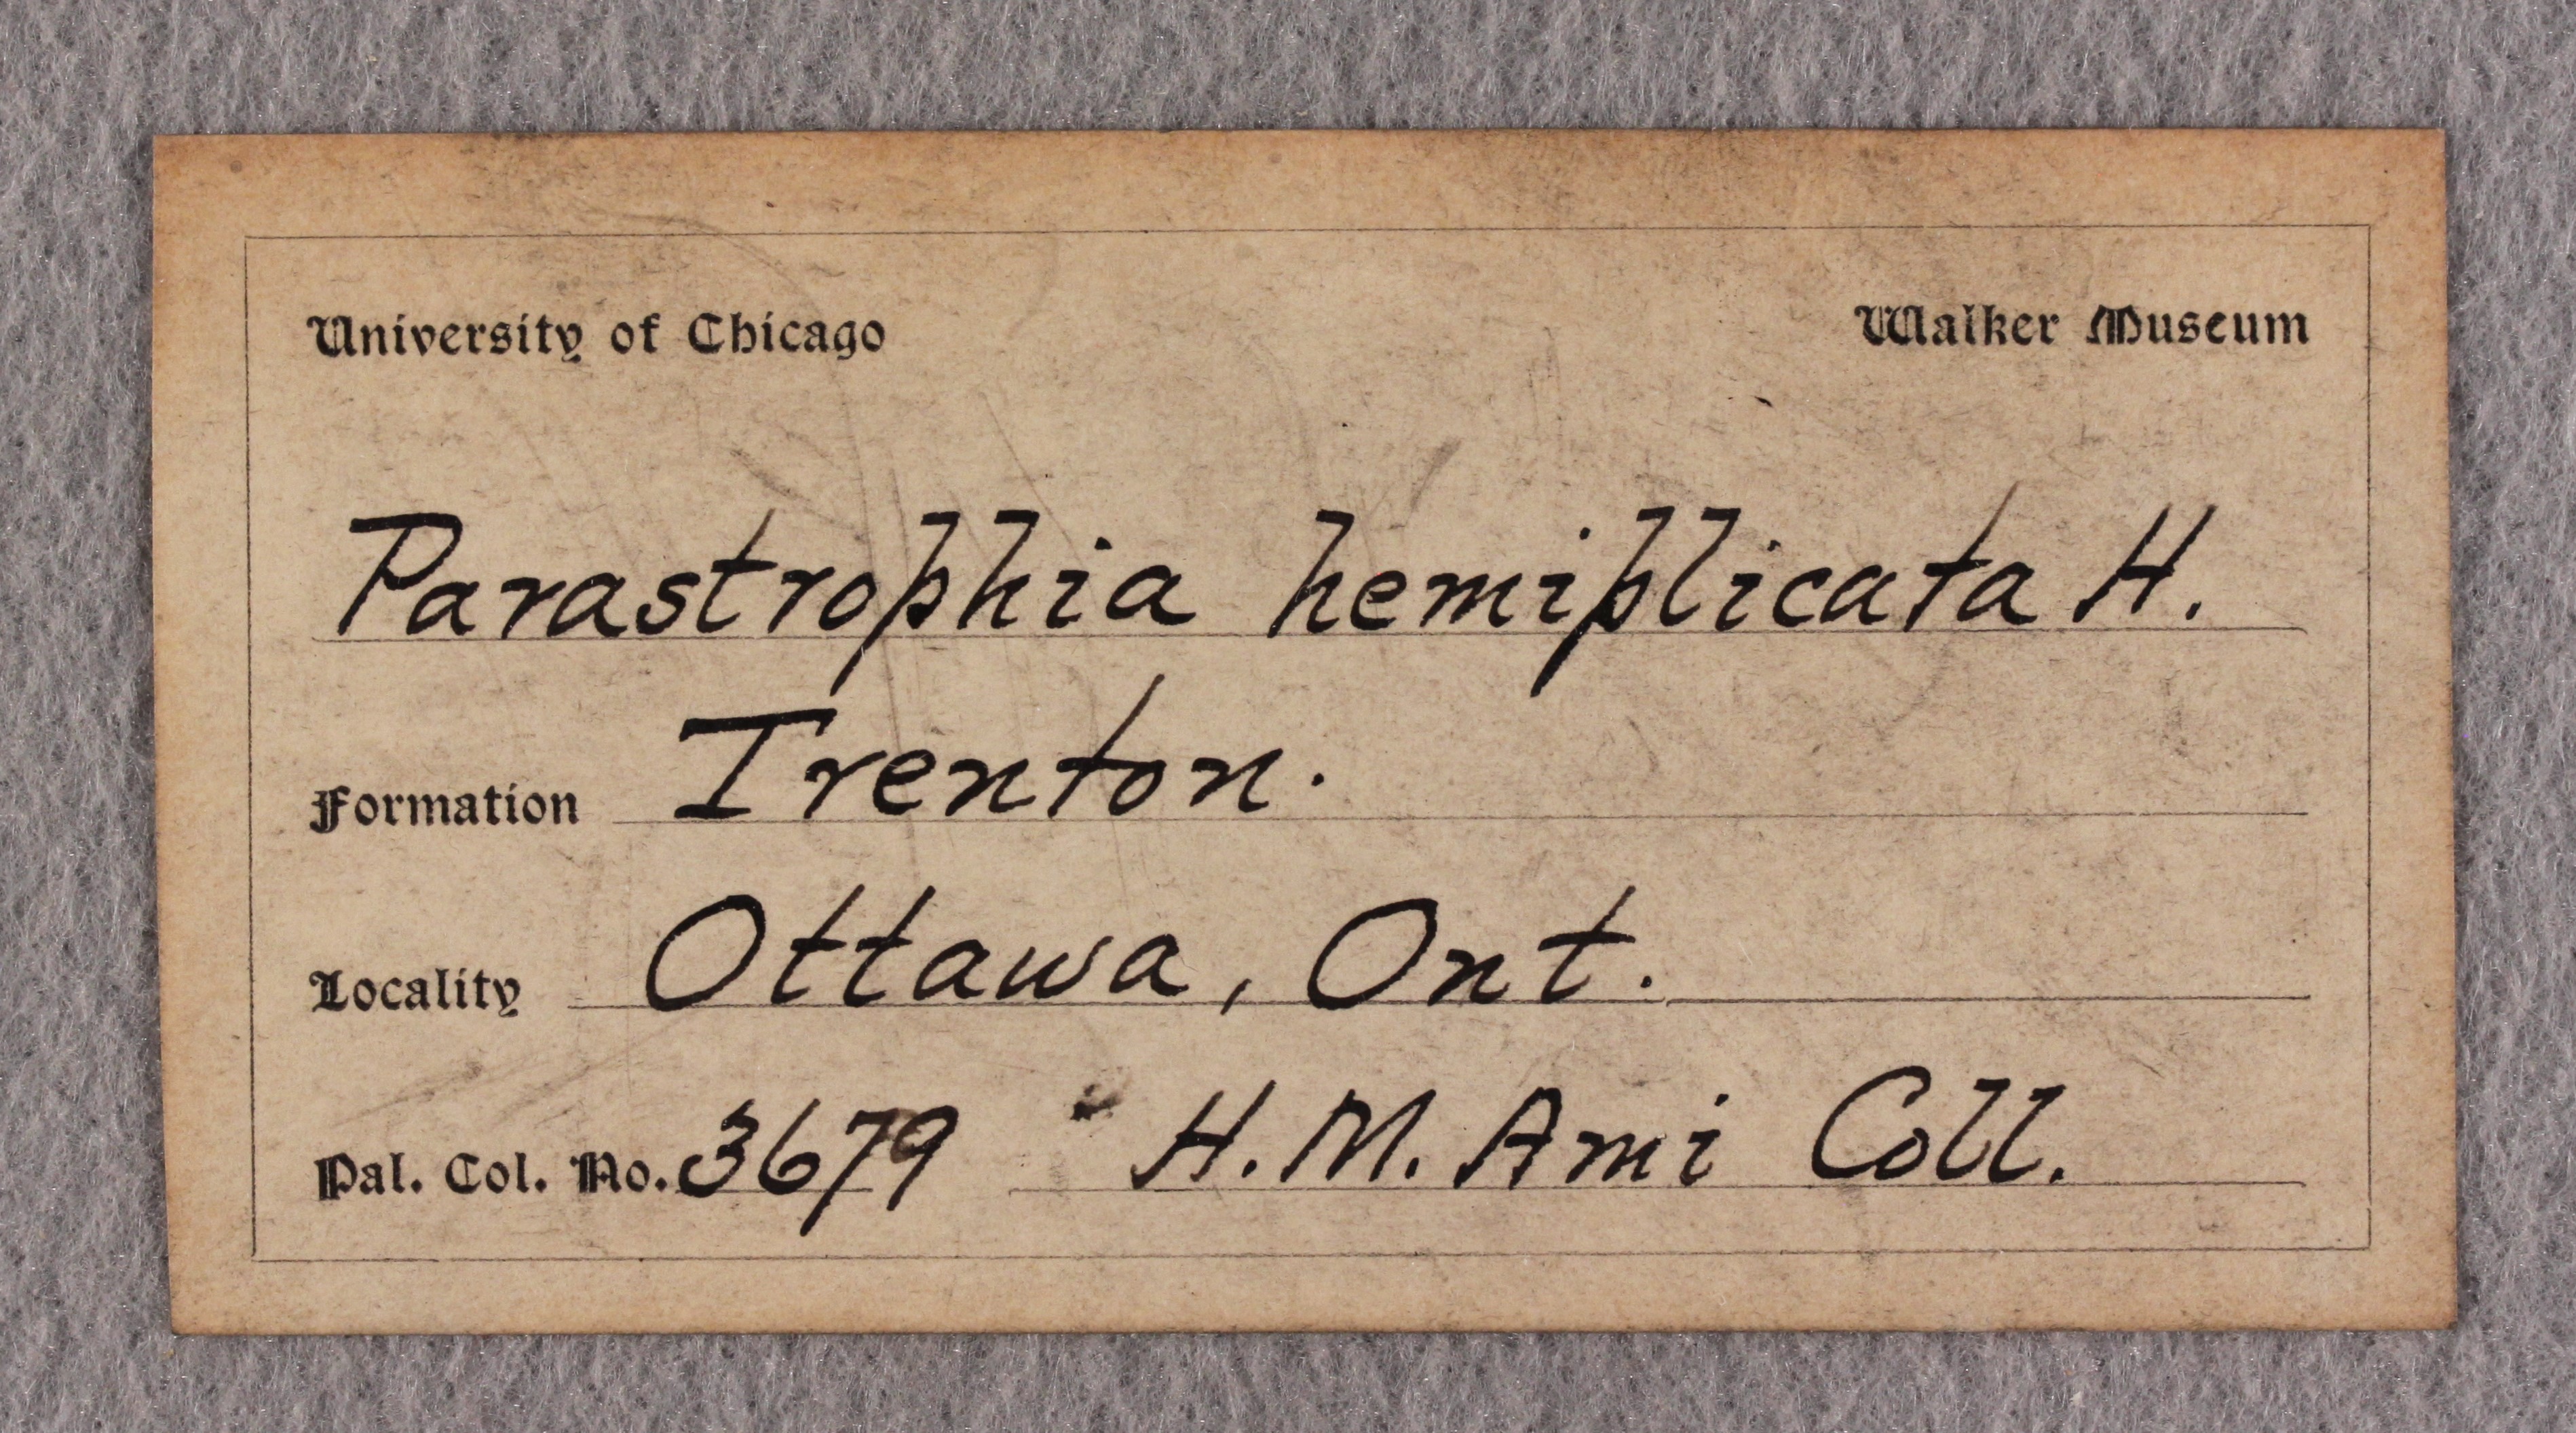 University of Chicago Walker Museum
Parastrophia hemiplicata H.
Formation Trenton.
Locality Ottawa, Ont.
Pal. Col. No. 3679 H. M. Ami Coll.